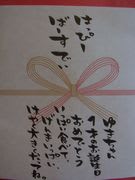 はっぴー
ばーすでい
ゆきちゃん
1才のお誕生日
おめでとう
いっぱい食べて、
げんきいっぱい